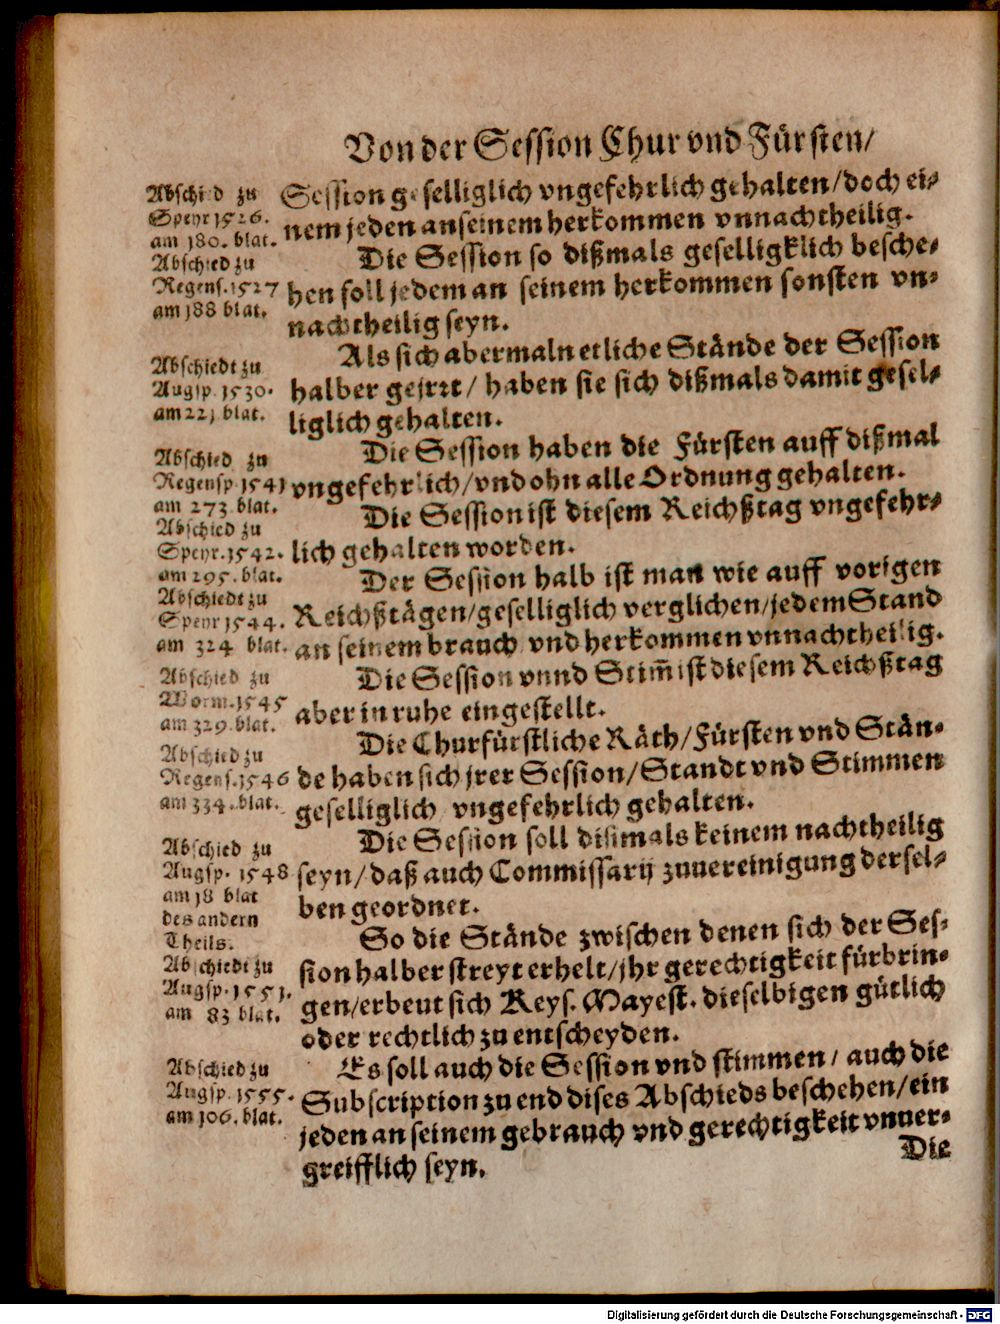 Von der Session Chur vnd Fürsten/
Abschied zu
Speyr 1526.
am 180. blat.
Session geselliglich vngefehrlich gehalten/doch ei-
nem jeden an seinem herkommen vnnachtheilig.
Abschied zu
Regens. 1527
am 188 blat.
Die Session so dißmals geselligklich besche-
hen soll jedem an seinem herkommen sonsten vn-
nachtheilig seyn.
Abschiedt zu
Augsp. 1530.
am 221 blat.
Als sich abermaln etliche Stände der Session
halber geirrt/ haben sie sich dißmals damit gesel-
liglich gehalten.
Abschied zu
Regensp. 1541
am 273 blat.
Die Session haben die Fürsten auff dißmal
vngefehrlich/vnd ohn alle Ordnung gehalten.
Abschied zu
Speyr. 1542.
am 295. blat.
Die Session ist diesem Reichßtag vngefehr-
lich gehalten worden.
Abschiedt zu
Speyr 1544.
am 324 blat.
Der Session halb ist man wie auff vorigen
Reichßtägen/geselliglich verglichen/jedem Stand
an seinem brauch vnd herkommen vnnachtheilig.
Abschied zu
Worm. 1545
am 329. blat.
Die Session vnnd Stim̄ ist diesem Reichßtag
aber in ruhe eingestellt.
Abschied zu
Regens. 1546
am 334. blat.
Die Churfürstliche Räth/Fürsten vnd Stän-
de haben sich jrer Session/Standt vnd Stimmen
geselliglich vngefehrlich gehalten.
Abschied zu
Augsp. 1548
am 18 blat
des andern
Theils.
Die Session soll dißmals keinem nachtheilig
seyn/daß auch Commissarij zuuereinigung dersel-
ben geordnet.
Abschiedt zu
Augsp. 1551.
am 83 blat.
So die Stände zwischen denen sich der Ses-
sion halber streyt erhelt/jhr gerechtigkeit fürbrin-
gen/erbeut sich Keys. Mayest. dieselbigen gütlich
oder rechtlich zu entscheyden.
Abschied zu
Augsp. 1555.
am 106. blat.
Es soll auch die Session vnd stimmen/ auch die
Subscription zu end dises Abschieds beschehen/ein
jeden an seinem gebrauch vnd gerechtigkeit vnuer-
greifflich seyn.
Die
Digitalisierung gefördert durch die Deutsche Forschungsgemeinschaft - DFG